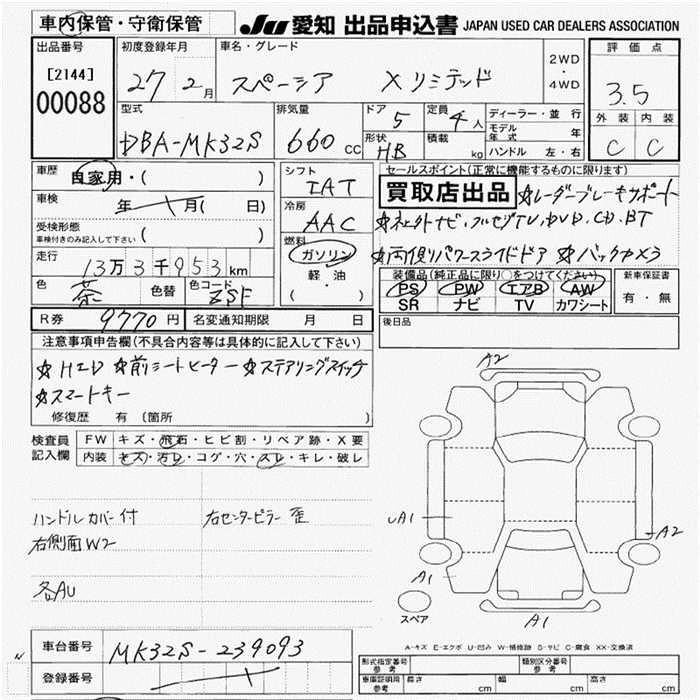 車内保管・守衛保管
JU 愛知 出品申込書 JAPAN USED CAR DEALERS ASSOCIATION
出品番号 初度登録年月 車名・グレード 評価点
[2144] 27年2月 スペーシア Xリミテッド 2WD・4WD 3.5
00088
型式 排気量 ドア 定員 ディーラー・並行 外装 内装
DBA-MK32S 660cc 5 4人 モデル年式 年 C C
形状 HB 積載 kg ハンドル 左・右
車歴 自家用・( ) シフト IAT セールスポイント(正常に機能するものに限ります)
買取店出品 ☆レーダーブレーキサポート
車検 年 月( 日) 冷房 AAC ☆ネェクトナビ,フルセグTV,DVD,CD,BT
受検形態 車検付きのみ記入して下さい ( ) 燃料 ガソリン 軽・油 ( )
☆両側パワースライドドア ☆バックカメラ
走行 13万3千953km 装備品(純正品に限り○をつけてください) 新車保証書
PS PW エアB AW 有・無
色 茶 色替 色コード ZSF SR ナビ TV カワシート
R券 9770円 名変通知期限 月 日 後日品
注意事項申告欄(不具合内容等は具体的に記入して下さい)
☆HID ☆前シートヒーター ☆ステアリングスイッチ
☆スマートキー
修復歴 有 (箇所 )
検査員記入欄 FW キズ・飛石・ヒビ割・リペア跡・X要
内装 キズ・汚レ・コゲ・穴・スレ・キレ・破レ
ハンドルカバー付 右センターピラー歪
右側面W2
各AU
A2
UA1
A2
A1
A1
スペア
A-キズ E-エクボ U-凹み W-補修跡 S-サビ C-腐食 XX-交換済
車台番号 MK32S-239093
登録番号
形式指定番号 参考 類別区分番号 参考
車庫証明用 参考 長さ cm 幅 cm 高さ cm